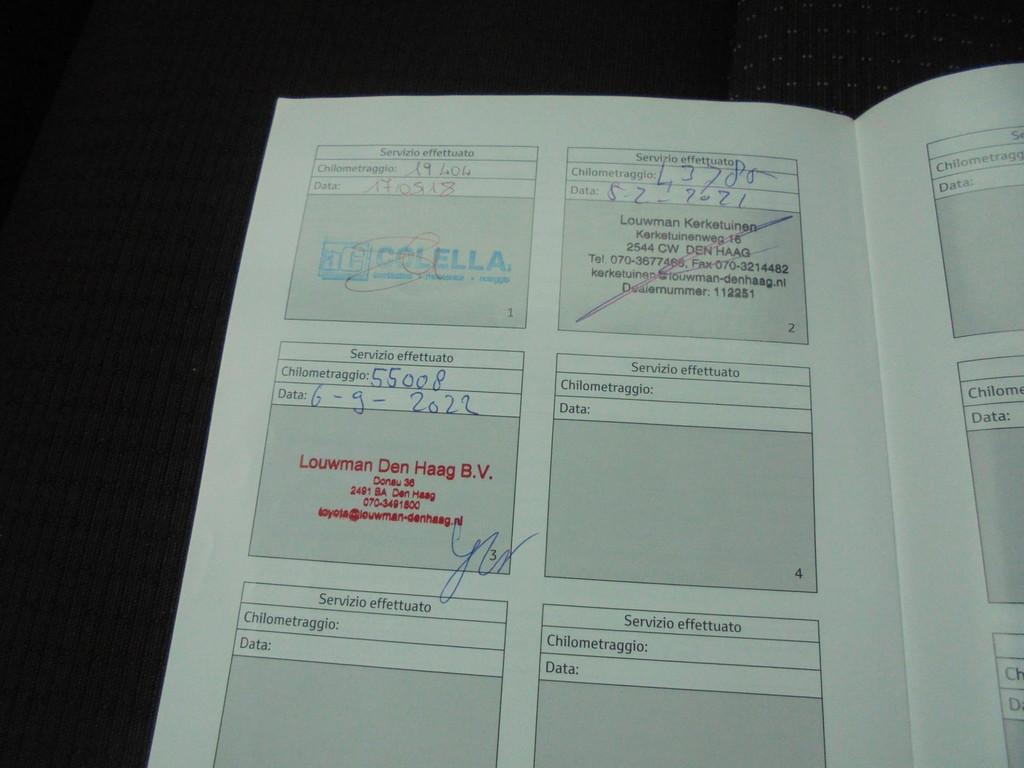 Servizio effettuato
Chilometraggio: 19404
Data: 170518
COLELLA
1
Servizio effettuato
Chilometraggio: 43780
Data: 5-2-2021
Louwman Kerketuinen
Kerketuinenweg 16
2544 CW DEN HAAG
Tel. 070-3677466, Fax 070-3214482
kerketuinen@louwman-denhaag.nl
Dealernummer: 112251
2
Servizio effettuato
Chilometraggio: 55008
Data: 6-9-2022
Louwman Den Haag B.V.
Donau 36
2491 BA Den Haag
070-3491500
toyota@louwman-denhaag.nl
3
Servizio effettuato
Chilometraggio:
Data:
4
Servizio effettuato
Chilometraggio:
Data:
Servizio effettuato
Chilometraggio:
Data:
Data:
Data: